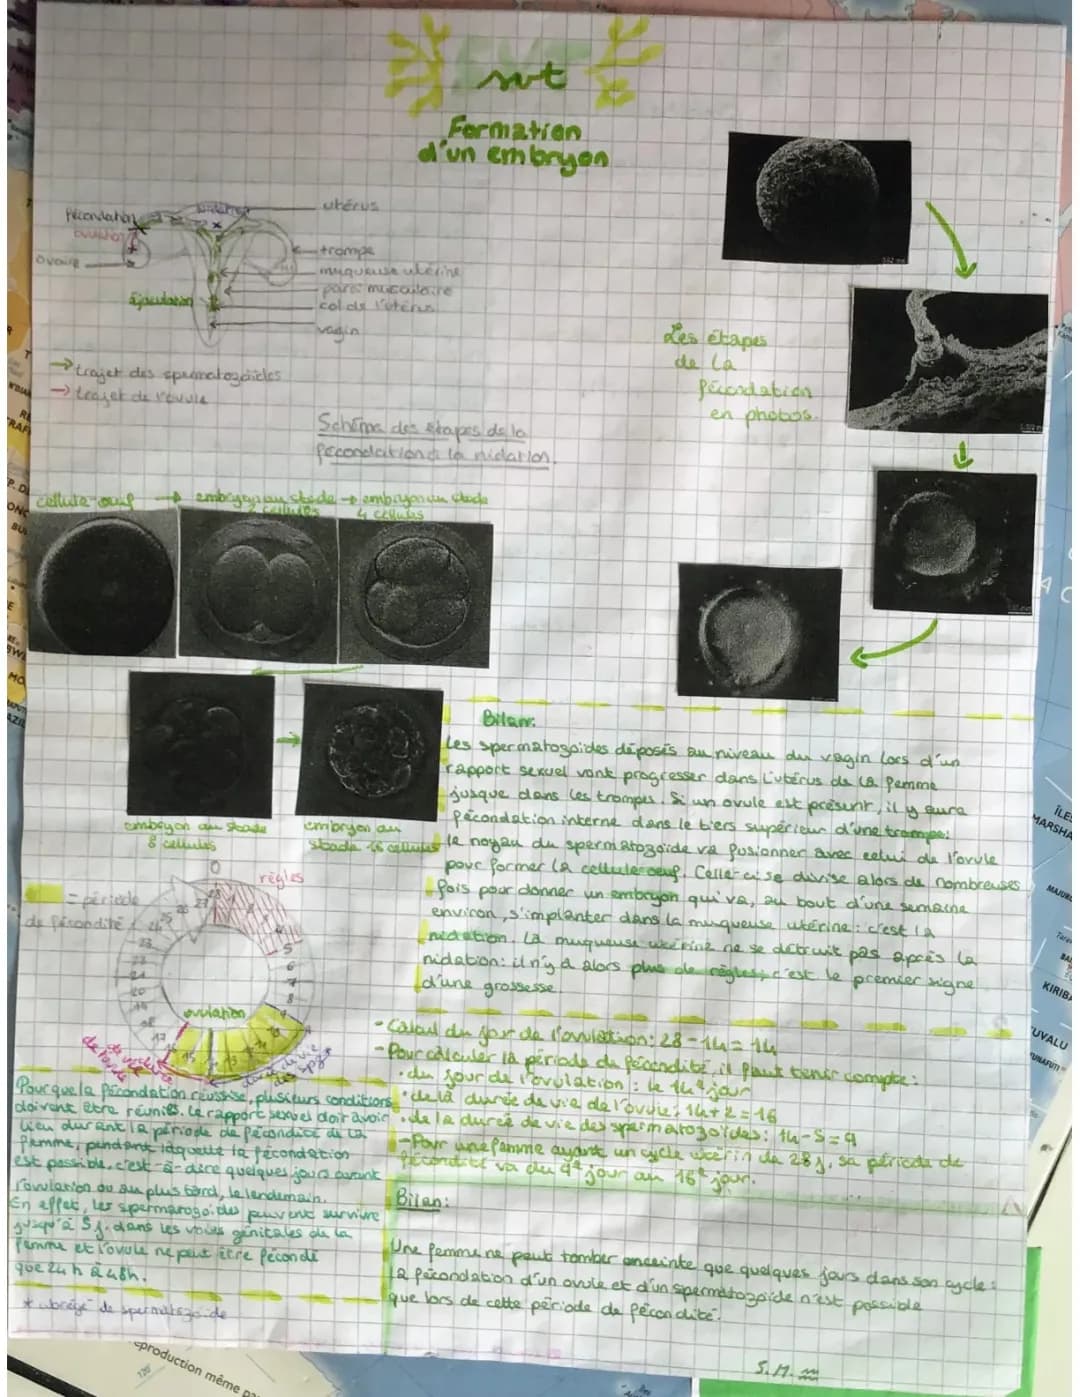 svt
Formation
d'un embryon
utérus
Fécondation
ovulation
ovaire
trompe
muqueuse utérine
paroi musculaire
col de l'utérus
éjaculation
vagin
→ trajet des spermatozoïdes
→ trajet de l'ovule
Schéma des étapes de la
fécondation à la nidation.
Les étapes
de la
fécondation
en photos.
cellule-oeuf → embryon au stade → embryon au stade
2 cellules 4 cellules
embryon au stade
8 cellules
embryon au
stade 16 cellules
Bilan:
Les spermatozoïdes déposés au niveau du vagin lors d'un
rapport sexuel vont progresser dans l'utérus de la femme
jusque dans les trompes. Si un ovule est présent, il y aura
fécondation interne dans le tiers supérieur d'une trompe:
le noyau du spermatozoïde va fusionner avec celui de l'ovule
pour former la cellule oeuf. Celle-ci se divise alors de nombreuses
fois pour donner un embryon qui va, au bout d'une semaine
environ, s'implanter dans la muqueuse utérine: c'est la
nidation. La muqueuse utérine ne se détruit pas après la
nidation: il n'y a alors plus de règles, c'est le premier signe
d'une grossesse.
= période
de fécondité
0
règles
28
27
26
25
24
23
22
21
20
19
18
17
16
15
14
13
5
6
7
8
9
ovulation
durée de vie
de l'ovule
durée de vie
des spz*
- Calcul du jour de l'ovulation: 28-14=14
- Pour calculer la période de fécondité, il faut tenir compte:
• du jour de l'ovulation: le 14e jour
• de la durée de vie de l'ovule: 14+2=16
• de la durée de vie des spermatozoïdes: 14-5=9
- Pour une femme ayant un cycle utérin de 28 j, sa période de
fécondité va du 9e jour au 16e jour.
Pour que la fécondation réussisse, plusieurs conditions
doivent être réunies. Le rapport sexuel doit avoir
lieu durant la période de fécondité de la
femme, pendant laquelle la fécondation
est possible, c'est-à-dire quelques jours avant
l'ovulation ou au plus tard, le lendemain.
En effet, les spermatozoïdes peuvent survivre
jusqu'à 5 j. dans les voies génitales de la
femme et l'ovule ne peut être fécondé
que 24 h à 48h.
* abrégé de spermatozoïde
Bilan:
Une femme ne peut tomber enceinte que quelques jours dans son cycle:
la fécondation d'un ovule et d'un spermatozoïde n'est possible
que lors de cette période de fécondité.
S.M.
production même pa
ÎLES
MARSHA
KIRIBA
TUVALU